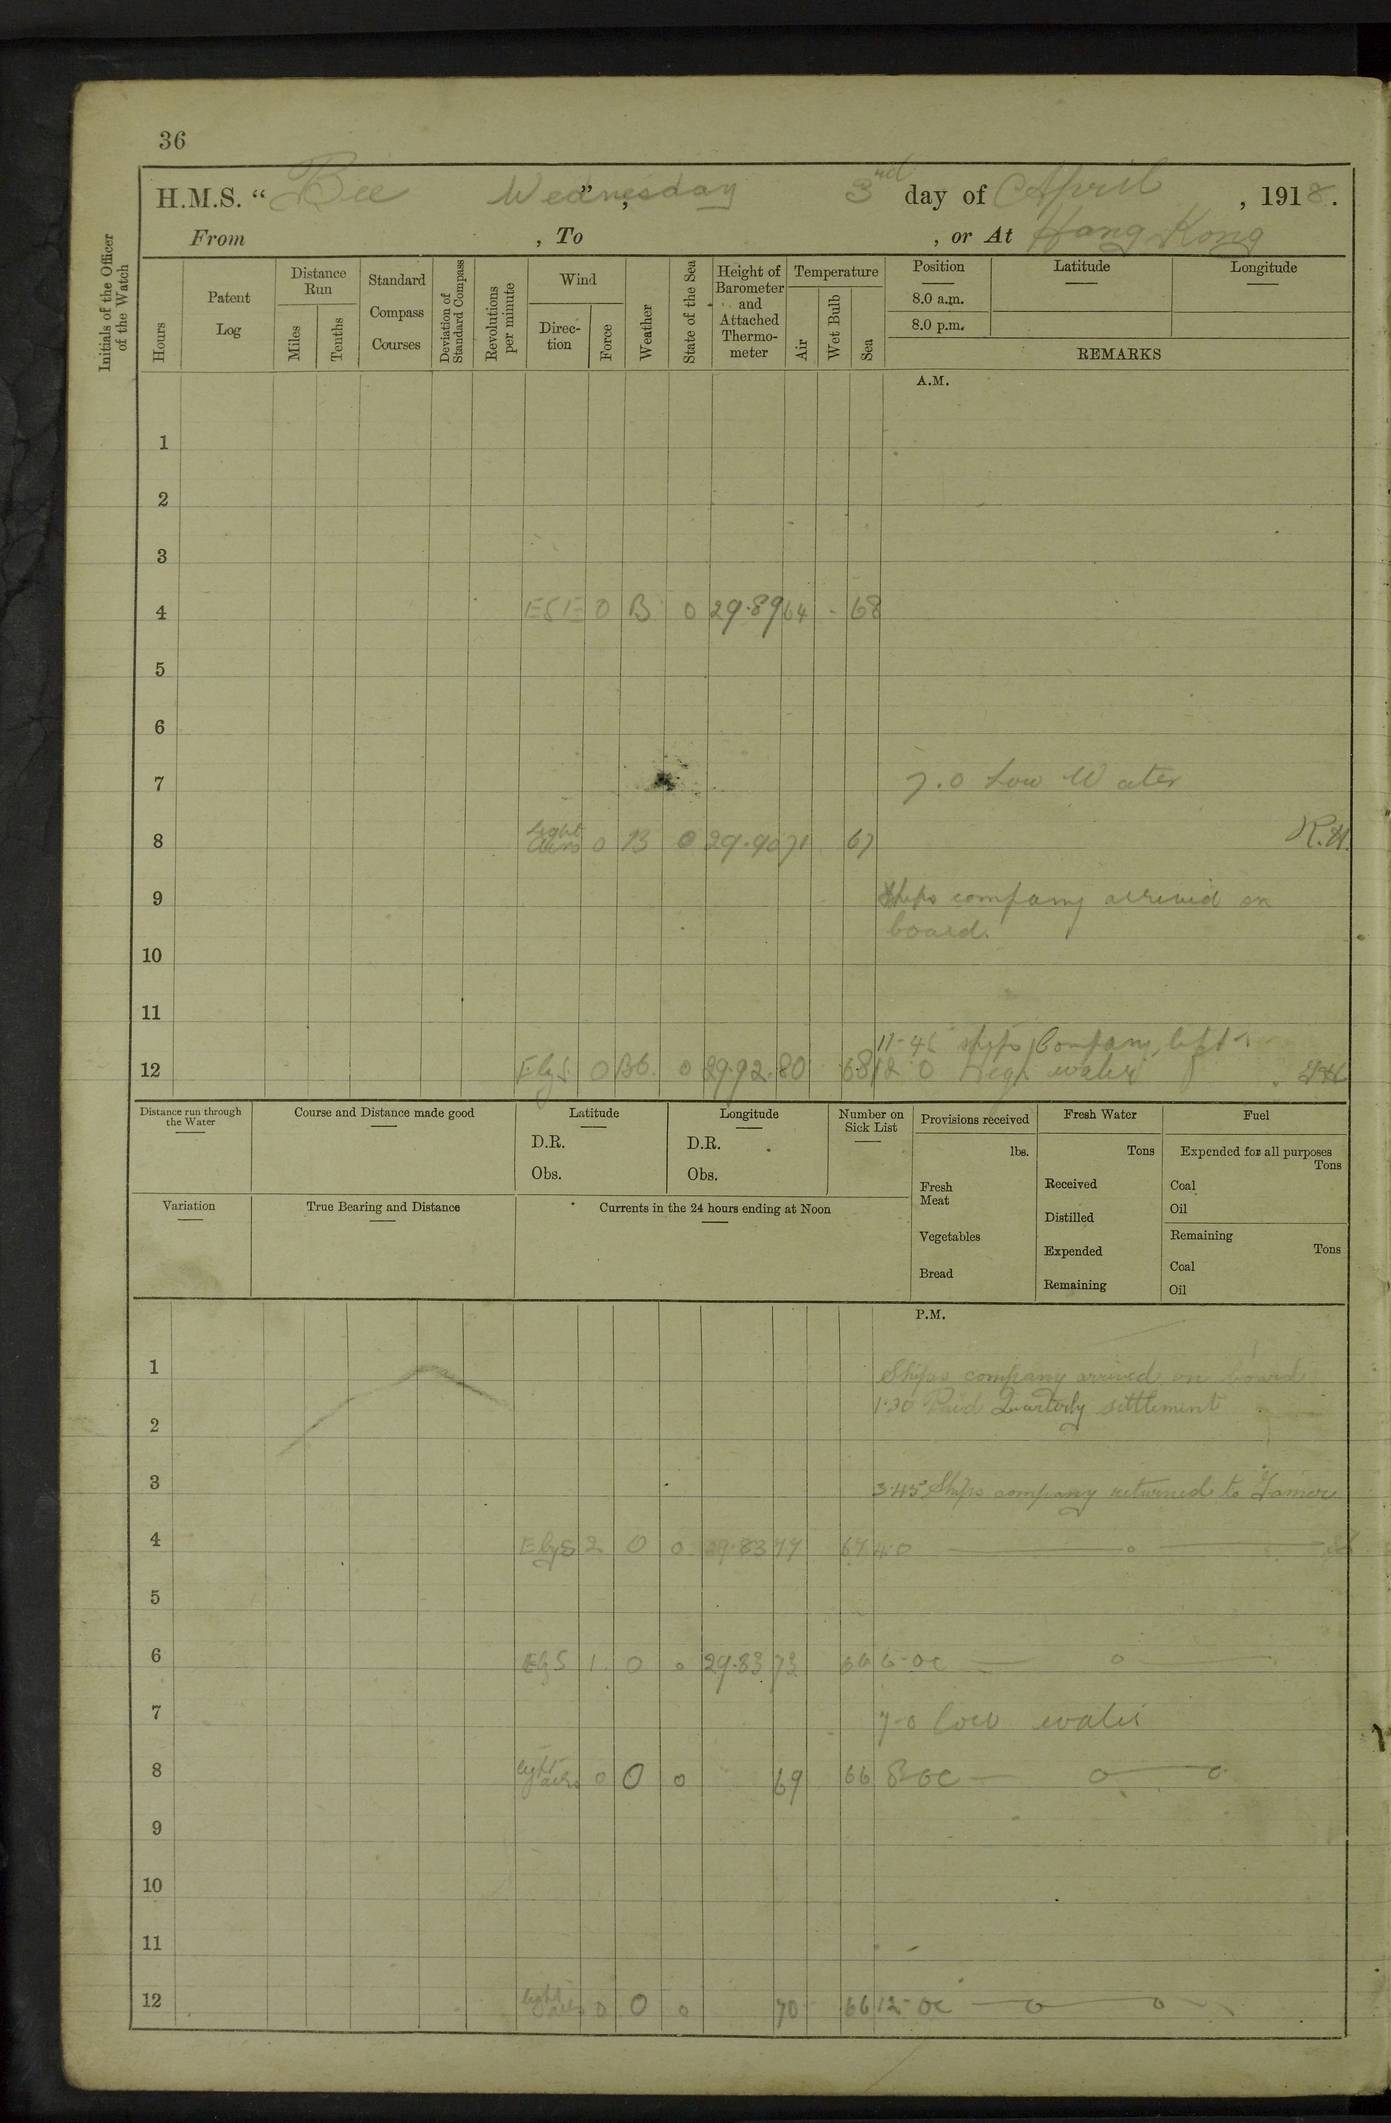 36
H.M.S. “Bee”, Wednesday 3nd day of April, 1918.
From , To , or At Hong Kong
Initials of the Officer of the Watch
Hours
Patent Log
Distance Run
Miles
Tenths
Standard Compass Courses
Deviation of Standard Compass
Revolutions per minute
Wind
Direction
Force
Weather
State of the Sea
Height of Barometer and Attached Thermometer
Temperature
Air
Wet Bulb
Sea
Position Latitude Longitude
8.0 a.m.
8.0 p.m.
REMARKS
A.M.
1
2
3
4 ESE 0 B 0 29.89 64 - 68
5
6
7 7.0 Low Water
8 light airs 0 B 0 29.90 71 67 R.H.
9 Ships company arrived on
board.
10
11
11-45 ships company left
12 E by S 0 BC. 0 29.92 80 68 12.0 High water
Distance run through the Water
Course and Distance made good
Latitude
D.R.
Obs.
Longitude
D.R.
Obs.
Number on Sick List
Provisions received
lbs.
Fresh Meat
Vegetables
Bread
Fresh Water
Tons
Received
Distilled
Expended
Remaining
Fuel
Expended for all purposes
Tons
Coal
Oil
Remaining
Tons
Coal
Oil
Variation
True Bearing and Distance
Currents in the 24 hours ending at Noon
P.M.
1 Ships company arrived on board
1.30 Paid Quarterly settlement
2
3 3.45 Ships company returned to Tamar
4 E by S 2 O 0 29.83 77 67 4.0
5
6 E by S 1 O 0 29.83 73 66 6-0C
7 7-0 low water
8 light airs 0 O 0 69 66 8-0C
9
10
11
12 light airs 0 O 0 70 66 12-0C